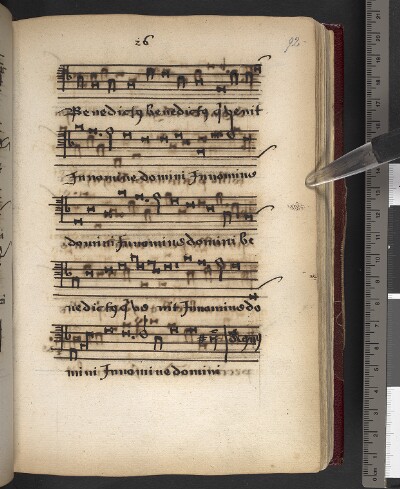 26
92
Benedictus benedictus q venit
In nomine domini In nomine
domini In nomine domini be
nedictus q ve nit In nomine do
mini In nomine domini